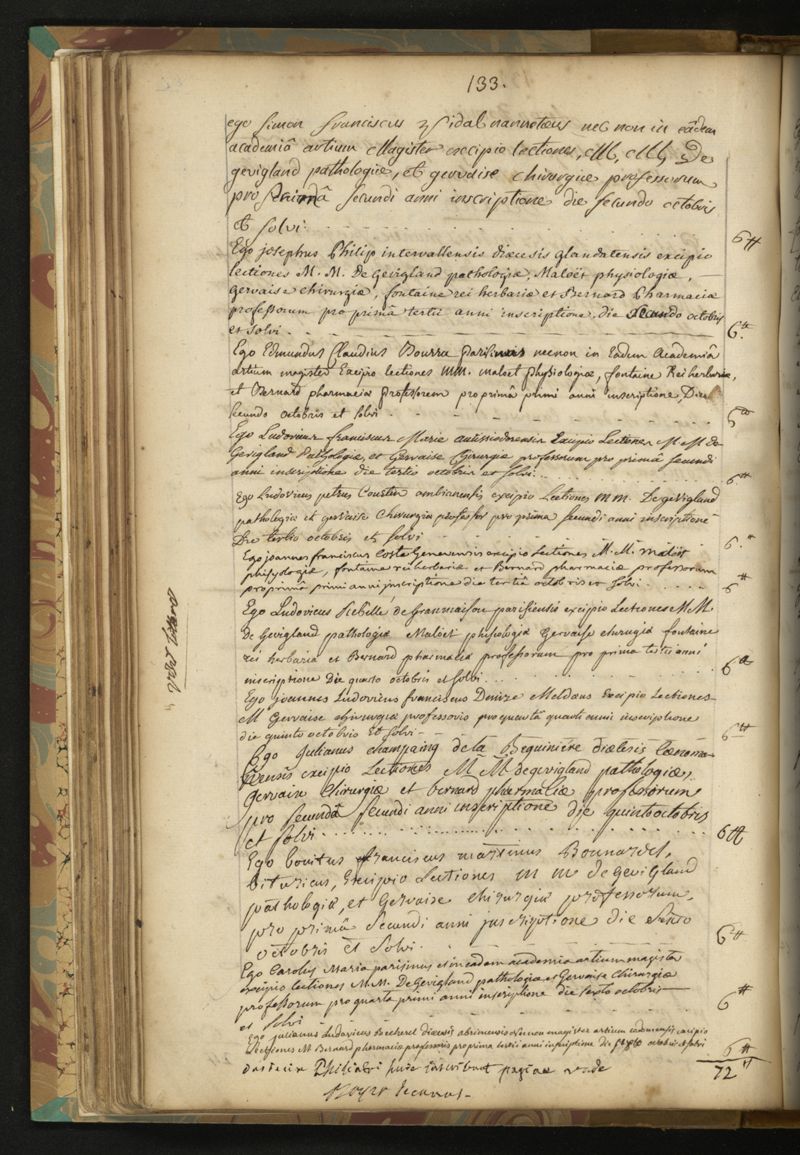 133.
ego Simon franciscus Vidal nannetæus nec non in eâdem
academiâ artium Magister excipio lectiones, M, M, De
gevigland pathologiæ, et gervaise chirurgiæ professorum
pro primâ secundi anni inscriptione die secundo octobris
et solvi. 6tt
Ego josephus Philip intervallensis diœcesis glandatensis excipio
lectiones M. M. De Gevigland pathologiæ, Maloët physiologiæ,
gervaise chirurgiæ, fontaine rei herbariæ et Bernard Pharmaciæ
professorum pro primâ tertii anni inscriptione die secundo octobris
et solvi. 6tt
Ego Edmundus Claudius Bourru parisinus necnon in Eadem Academiâ
artium magister Excipio lectiones mm. maloet physiologiæ, fontaine Rei herbariæ,
et Bernard pharmaciæ professorem pro primâ primi anni inscriptione, Die
secundo octobris et solvi 6tt
Ego Ludovicus franciscus Marie autissiodorensis Excipio Lectiones M M de
Gevigland Pathologiæ, et Gervaise Chirurgiæ professorum pro primâ secundi
anni inscriptione die tertio octobris et solvi. 6tt
Ego Ludovicus petrus Coustin ambianensis excipio Lectiones mm. De gevigland
pathologiæ et gervaise Chirurgiæ professor pro prima secundi anni inscriptione
Die tertio octobris et solvi 6tt
Ego joannes franciscus Coste Genevensis excipio Lectiones M. M. maloët
phisyologiæ, fontaine rei herbariæ et Bernard pharmaciæ professorum
pro primâ primi anni inscriptione die tertiâ octobris et solvi 6tt
Ego Ludovicus de Granmaison parisiensis excipio Lectiones M M.
De Gevigland pathologiæ Maloët phisiologiæ Gervaise chirurgiæ fontaine
rei herbariæ et Bernard pharmaciæ professorum pro prima tertii anni
inscriptione die quarto octobris et solvi 6tt
Ego joannes Ludovicus franciscus Denize Meldæus Excipio Lectiones
M Gervaise chirurgiæ professoris pro quartâ quarti anni inscriptione
die quinto octobris Et solvi 6tt
Ego Julianus champaing de la Bequiniere diœcesis Cænoma-
nensis excipio Lectiones M M de gevigland pathologiæ,
Gervaise Chirurgiæ et bernard pharmaciæ professorum
pro secundâ secundi anni inscriptione die quinto octobris
et solvi 6tt
Ego bonitus franciscus maximus Bonnardel,
bituricus, Excipio Lectiones m m de Gevigland
pathologiæ, et Gervaise chirurgiæ professorum,
pro primâ secundi anni inscriptione die sexto
octobris et solvi. 6tt
Ego Carolus Maria parisinus et in eadem academia artium magister
excipio lectiones M. M. De Gevigland pathologiæ et Gervaise Chirurgiæ
professorum pro quarta primi anni inscriptione die sexto octobris
et solvi 6tt
Ego julianus Ludovicus diœcesis abrincensis magister artium cadomensis excipio
Lectiones M Bernard pharmaciæ professoris pro prima tertii anni inscriptione die sexto octobris et solvi 6tt
Philiatri huic inscribunt paginæ
72tt